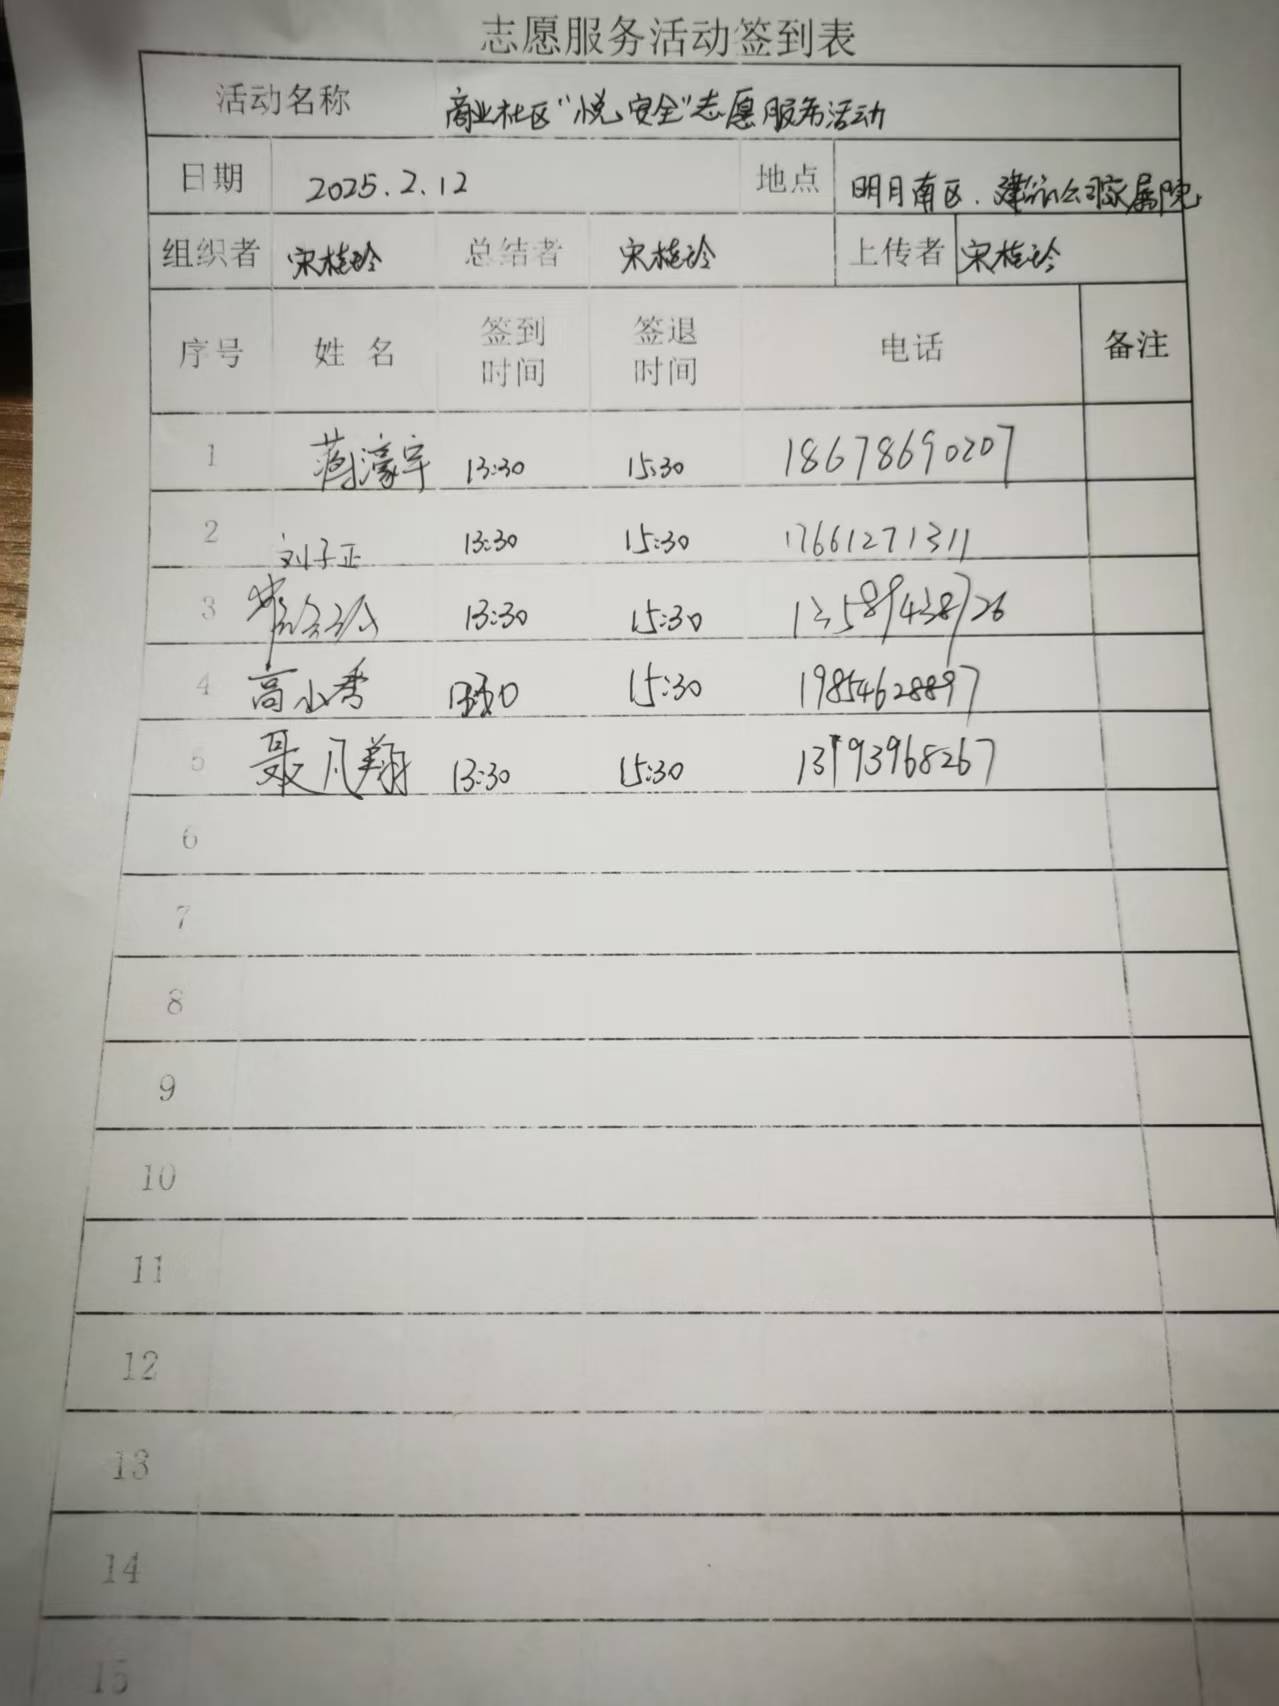 志愿服务活动签到表
活动名称 商业社区“悦安全”志愿服务活动
日期 2025.2.12 地点 明月南区.建筑公司家属院
组织者 宋桂玲 总结者 宋桂玲 上传者 宋桂玲
序号 姓名 签到时间 签退时间 电话 备注
1 蔺濠宇 13:30 15:30 18678690207
2 刘子正 13:30 15:30 17661271311
3 13:30 15:30 13589438726
4 高小秀 13:30 15:30 19854628897
5 聂凡翔 13:30 15:30 13793968267
6
7
8
9
10
11
12
13
14
15